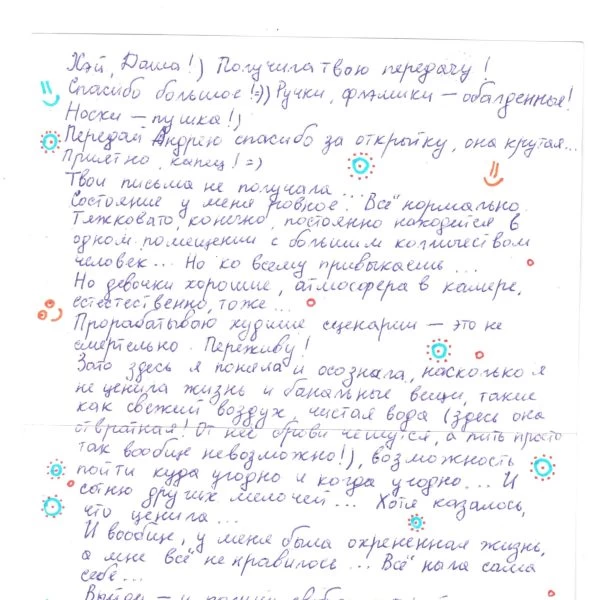 Хэй, Даша!) Получила твою передачу!
Спасибо большое!=)) Ручки, флэшики — обалденные!
Носки — пушка!)
Передай Андрею спасибо за открытку, она крутая...
Приятно, капец! =)
Твои письма не получала...
Состояние у меня ровное. "Всё" нормально.
Тяжковато, конечно, постоянно находится в
одном помещении с большим количеством
человек... Но ко всему привыкаешь...
Но девочки хорошие, атмосфера в камере,
естестественно, тоже...
Прорабатываю худшие сценарии — это не
смертельно. Переживу!
Зато здесь я поняла и осознала, насколько я
не ценила жизнь и банальные вещи, такие
как свежий воздух, чистая вода (здесь она
отвратная! От неё брови чешутся, а пить просто
так вообще невозможно!), возможность
пойти куда угодно и когда угодно... И
сотню других мелочей... Хотя казалось,
что ценила...
И вообще, у меня была охрененная жизнь,
а мне всё не нравилось... Всё ныла сама
себе...